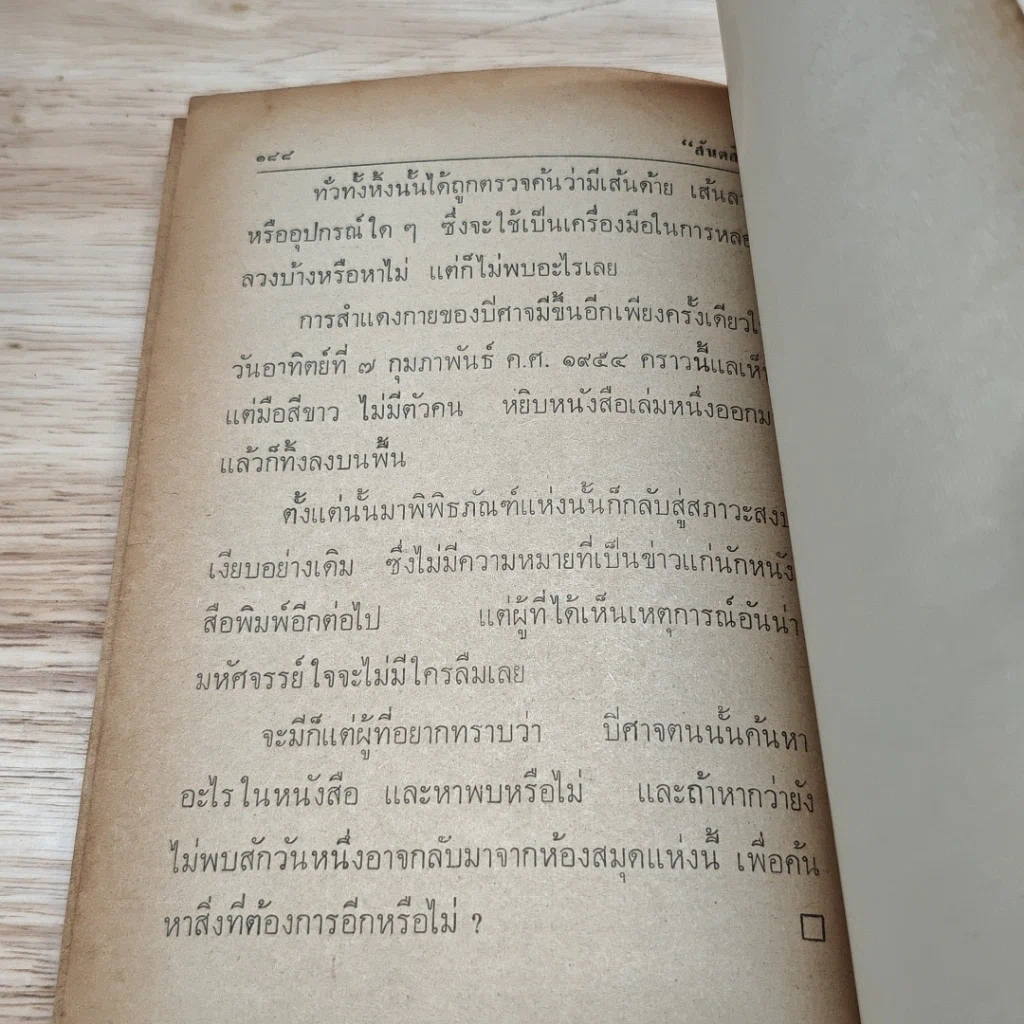 ๑๘๘ “สันตสิ
ทั่วทั้งห้องนั้นได้ถูกตรวจค้นว่ามีเส้นด้าย
หรืออุปกรณ์ใด ๆ ซึ่งจะใช้เป็นเครื่องมือในการหลอ
ลวงบ้างหรือหาไม่ แต่ก็ไม่พบอะไรเลย
การสำแดงกายของปีศาจมีขึ้นอีกเพียงครั้งเดียว
วันอาทิตย์ที่ ๗ กุมภาพันธ์ ค.ศ. ๑๙๕๔ คราวนี้แลเห็
แต่มือสีขาว ไม่มีตัวคน หยิบหนังสือเล่มหนึ่งออกม
แล้วก็ทิ้งลงบนพื้น
ตั้งแต่นั้นมาพิพิธภัณฑ์แห่งนั้นก็กลับสู่สภาวะสงบ
เงียบอย่างเดิม ซึ่งไม่มีความหมายที่เป็นข่าวแก่นักหนัง
สือพิมพ์อีกต่อไป แต่ผู้ที่ได้เห็นเหตุการณ์อันน่า
มหัศจรรย์ใจจะไม่มีใครลืมเลย
จะมีก็แต่ผู้ที่อยากทราบว่า ปีศาจตนนั้นค้นหา
อะไรในหนังสือ และหาพบหรือไม่ และถ้าหากว่ายัง
ไม่พบสักวันหนึ่งอาจกลับมาจากห้องสมุดแห่งนี้ เพื่อค้น
หาสิ่งที่ต้องการอีกหรือไม่ ?